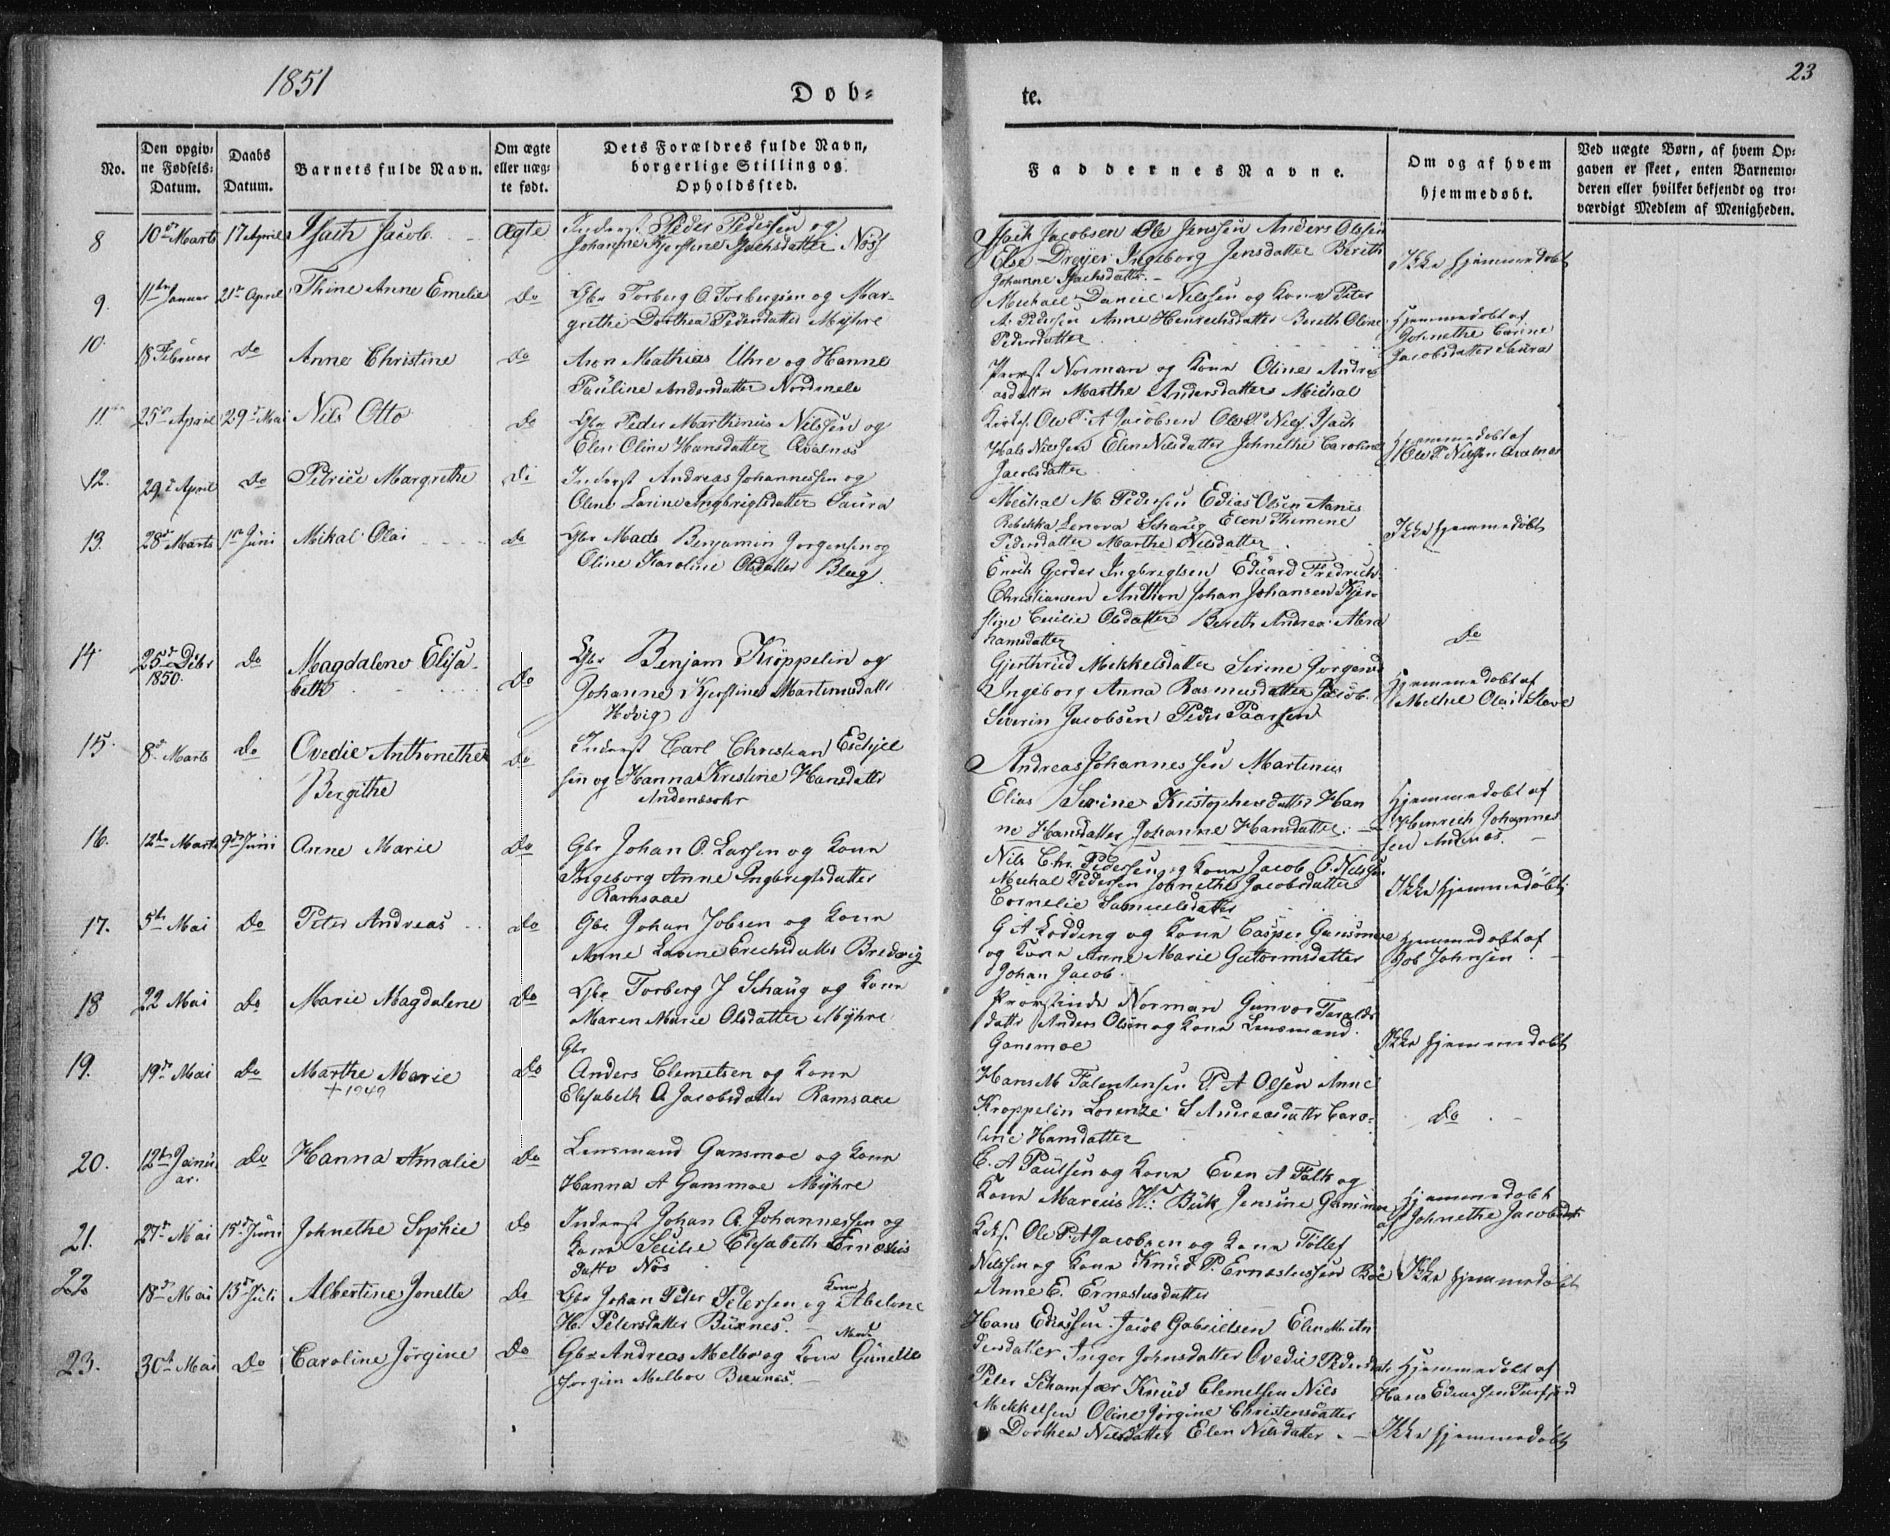 1851
Døb-
te.
23
No.
Den opgiv-
ne Fødsels-
Datum.
Daabs
Datum.
Barnets fulde Navn.
Om ægte
eller uæg-
te født.
Dets Forældres fulde Navn,
borgerlige Stilling og
Opholdssted.
Faddernes Navne.
Om og af hvem
hjemmedøbt.
Ved uægte Børn, af hvem Op-
gaven er skeet, enten Barnemo-
deren eller hvilket bekjendt og tro-
værdigt Medlem af Menigheden.
8 10de Marts 17 April Isach Jacob Ægte Inderst Peder Pedersen og
Johanne Kjerstine Isachsdatter Nøss
Isach Jacobsen Ole Jenssen Anders Olsen
Else Dreyer Ingeborg Jensdatter Bereth
Johanne Isachsdatter
Ikke hjemmedøbt
9. 11te Januar 21de April Thrine Anne Emelie Do Gbr Torberg O Torbergsen og Mar-
grethe Dorthea Pedersdatter Myhre
Michael Daniel Nilssen og Kone Peter
A. Pedersen Anne Henrichsdatter Bereth Oline
Pedersdatter
Hjemmedøbt af
Johnethe Carine
Jacobsdatter Saura
10. 18 Februar Do Anne Christine Do Aron Mathias Uhre og Hanne
Pauline Andersdatter Nordmele
Provst Norman og Kone Oline Andre
asdatter Marthe Andersdatter Michal
11te 25de April 29de Mai Nils Otto Do Gbr Peder Marthinus Nilssen og
Elen Oline Hansdatter Qvalnes
Kirkes. Ole P A Jacobsen Ole P. Niels. Isach
Hals Nilssen Elen Nilsdatter Johnethe Caroline
Jacobsdatter
Hjemmedøbt af
Ole P. Nilssen Qvalnes
12. 29de April Do Petrice Margrethe Do Inderst Andreas Johannessen og
Oline Larine Ingbrigtsdatter Saura
Michal M. Pedersen Edias Olsen Aanes
Rebekka Lenora Schaug Elen Thomine
Pedersdatter Marthe Nilsdatter
Ikke hjemmedøbt
13. 28de Marts 1ste Juni Mikal Olai Do Gbr Mads Benjamin Jørgensen og
Oline Karoline Olsdatter Bleg.
Enoch Gerder Ingbrigtsen Eduard Fredrich
Christiansen Anthon Johan Johansen Kjer-
stine Cecilie Olsdatter Bereth Andrea Abra
hamsdatter
Do
14. 25de Debr
1850. Do Magdalene Elisa-
beth Do Gbr Benjam Krøppelin og
Johanne Kjerstine Martinusdatter
Hovig
Gjerthrud Mekkelsdatter Serine Jørgensd
Ingeborg Anna Rasmusdatter Jacob
Severin Jacobsen Peder Paarssen
Hjemmedøbt af
Mekkel Olai Slave
15. 8de Marts Do Ovedie Anthonethe
Bergithe Do Inderst Carl Christian Eschjel
sen og Hanna Kristine Hansdatter
Andenæs
Andreas Johannessen Martinus
Elias Serine Kristophersdatter Han
ne Hansdatter Johanne Hansdatter
Hjemmedøbt af
Henrich Johannes
sen Andenæs
16. 12te Marts 9de Juni Anne Marie Do Gbr Johan O. Larssen og Kone
Ingeborg Anne Ingbrigtsdatter
Ramsaae
Nils Chr. Pedersen og Kone Jacob O. Nilssen
Michal Pedersen Johnethe Jacobsdatter
Cornelie Samuelsdatter
Ikke hjemmedøbt
17. 5te Mai Do Peter Andreas Do Gbr Johan Jobsen og Kone
Anne Lovine Erichsdatter Bredvig
G A Lodding og Kone Casper Gansmoe
og Kone Anne Marie Gutormsdatter
Johan Jacob
Hjemmedøbt af
Job Johnsen
18 22 Mai Do Marie Magdalene Do Gbr Torberg J Schaug og Kone
Maren Marie Olsdatter Myhre
Provstinde Norman Gunvor Taralds
datter Anders Olsen og Kone Lensmand
Gansmoe
Ikke hjemmedøbt
19. 19de Mai Do Marthe Marie
+ 1949 Do Gbr
Anders Clemetsen og Kone
Elisabeth A Jacobsdatter Ramsaae
Hans M Falentensen P. A Olsen Anne
Kroppelin Lorentze S Andreasdatter Caro-
line Hansdatter
Do
20. 12te Janu
ar. Do Hanna Amalie Do Lensmand Gansmoe og Kone
Hanna A Gansmoe Myhre
C. A Paulsen og Kone Even A Falk og
Kone Marcus W. Buk Jensine Gansmoe
Hjemmedøbt
af Johnethe Jacobsdatter
21. 27de Mai 15de Juni Johnethe Sophie Do Inderst Johan A. Johannessen og
Kone Secilie Elisabeth Ernestus
datter Nøs
Kirks. Ole P. A Jacobsen og Kone Tollef
Nilssen og Kone Knud P. Ernestussen Bøe
Anne E. Ernestusdatter
Ikke hjemmedøbt
22 18de Mai 13de Juli Albertine Jonette Do Gbr Johan Peter Petersen og Kone Abelone
H. Petersdatter Buxnes.
Hans Ediassen Jacob Gabrielsen Elen M An
dersdatter Inger Johnsdatter Ovedie Pedersdatter
Hjemmedøbt af
Hans Ediassen
23. 30te Mai Do Caroline Jørgine Do Gbr Andreas Melbo og Kone Gunelle
Jørgine Melboe Buxnes.
Peter Schamfær Knud Clemetsen Nils
Mekkelsen Oline Jørgine Christensdatter
Dorthea Nilsdatter Elen Nilsdatter
Ikke hjemmedøbt